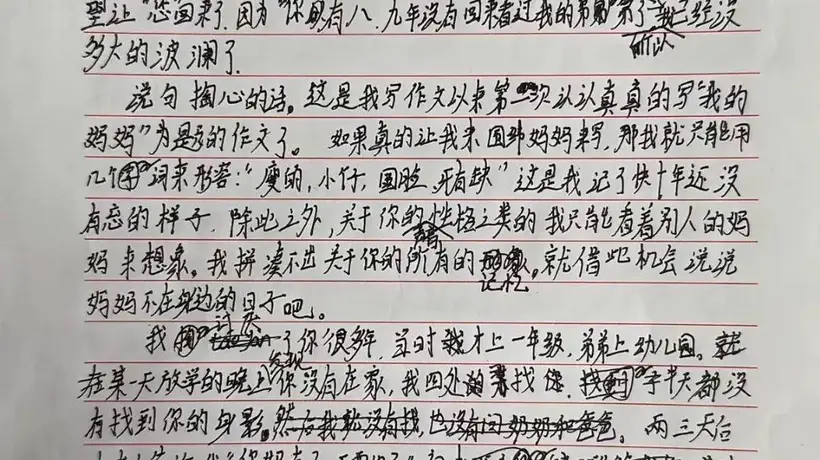 望让"您"回来了.因为"你"具有八.九年没有回来看过我的弟弟了所以我已经没
多大的波澜了
说句掏心的话。这是我写作文以来第一次认认真真的写"我的
妈妈"为题的作文了。如果真的让我来围绕妈妈来写,那我就只能用
几个词来形容:"瘦的,小仔,圆脸,牙有缺"这是我记了快十年还没
有忘的样子.除此之外,关于你的性格之类的我只能看着别人的妈
妈来想象。我拼凑不出关于你的所有的记忆。就借此机会说说
妈妈不在身边的日子吧。
我讨厌了你很多年,当时我才上一年级,弟弟上幼儿园。就
在某一天放学的晚上发现你没有在家,我四处寻找你.找了半天都没
有找到你的身影。然后我就没有找,也没有问奶奶和爸爸。两三天后